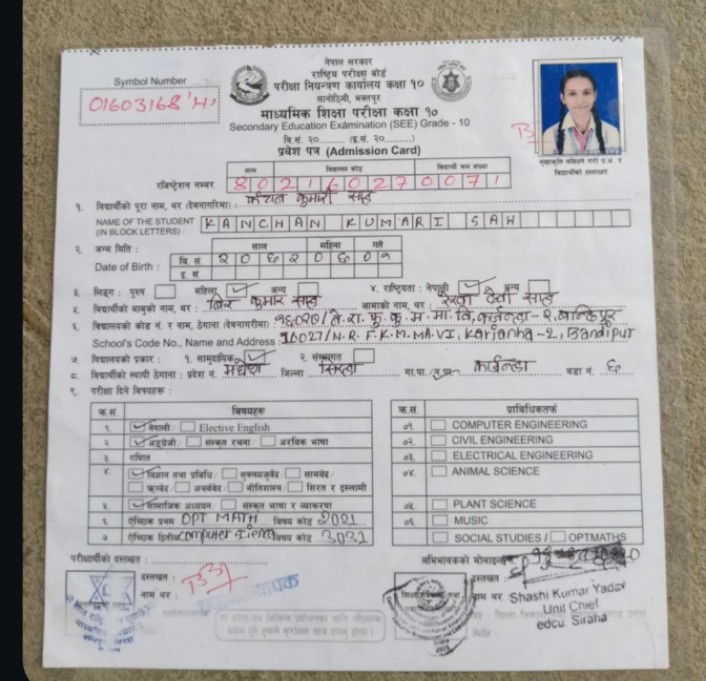 नेपाल सरकार
राष्ट्रिय परीक्षा बोर्ड
परीक्षा नियन्त्रण कार्यालय कक्षा १०
सानोठिमी, भक्तपुर
माध्यमिक शिक्षा परीक्षा कक्षा १०
Secondary Education Examination (SEE) Grade - 10
वि.सं. २०........ (इ.सं. २०........)
प्रवेश पत्र (Admission Card)
Symbol Number
01603168
साल विद्यालय कोड विद्यार्थी क्रम संख्या
रजिष्ट्रेशन नम्बर 802160270071
१. विद्यार्थीको पूरा नाम, थर (देवनागरीमा) : कंचन कुमारी साह
NAME OF THE STUDENT KANCHAN KUMARI SAH
(IN BLOCK LETTERS) :
२. जन्म मिति : साल महिना गते
Date of Birth : वि. सं. २०६२०६
इ. सं.
३. लिङ्ग : पुरुष महिला अन्य ४. राष्ट्रियता : नेपाली अन्य
५. विद्यार्थीको बाबुको नाम, थर : कुमार साह आमाको नाम, थर : देवी साह
६. विद्यालयको कोड नं. र नाम, ठेगाना (देवनागरीमा) : ने. रा. फु. कु. म. मा. वि, कर्जन्हा-२, बन्दिपुर
School's Code No., Name and Address : 16027/N.R.F.K.M.MA.VI, Karjanha-2, Bandipur
७. विद्यालयको प्रकार : १. सामुदायिक २. संस्थागत
८. विद्यार्थीको स्थायी ठेगाना : प्रदेश नं. मधेश जिल्ला सिरहा गा.पा./न.पा. कर्जन्हा वडा नं. ६
९. परीक्षा दिने विषयहरू :
क्र.सं. विषयहरू
१ नेपाली / Elective English
२ अङ्ग्रेजी संस्कृत रचना / अरबिक भाषा
३ गणित
४. विज्ञान तथा प्रविधि / शुक्लयजुर्वेद सामवेद /
ऋग्वेद अथर्ववेद नीतिशास्त्र / सिरत र इस्लामी
५. सामाजिक अध्ययन / संस्कृत भाषा र व्याकरण
६ ऐच्छिक प्रथम OPT MATH विषय कोड
७ ऐच्छिक द्वितीय Computer Science विषय कोड 3031
क्र.सं. प्राविधिकतर्फ
०१. COMPUTER ENGINEERING
०२. CIVIL ENGINEERING
०३. ELECTRICAL ENGINEERING
०४. ANIMAL SCIENCE
०५. PLANT SCIENCE
०६. MUSIC
SOCIAL STUDIES / OPTMATHS
परीक्षार्थीको दस्तखत :
दस्तखत :
नाम थर :
अभिभावकको मोबाइल
दस्तखत
नाम थर
Shashi Kumar Yadav
Unit Chief
edcu. Siraha
मिति